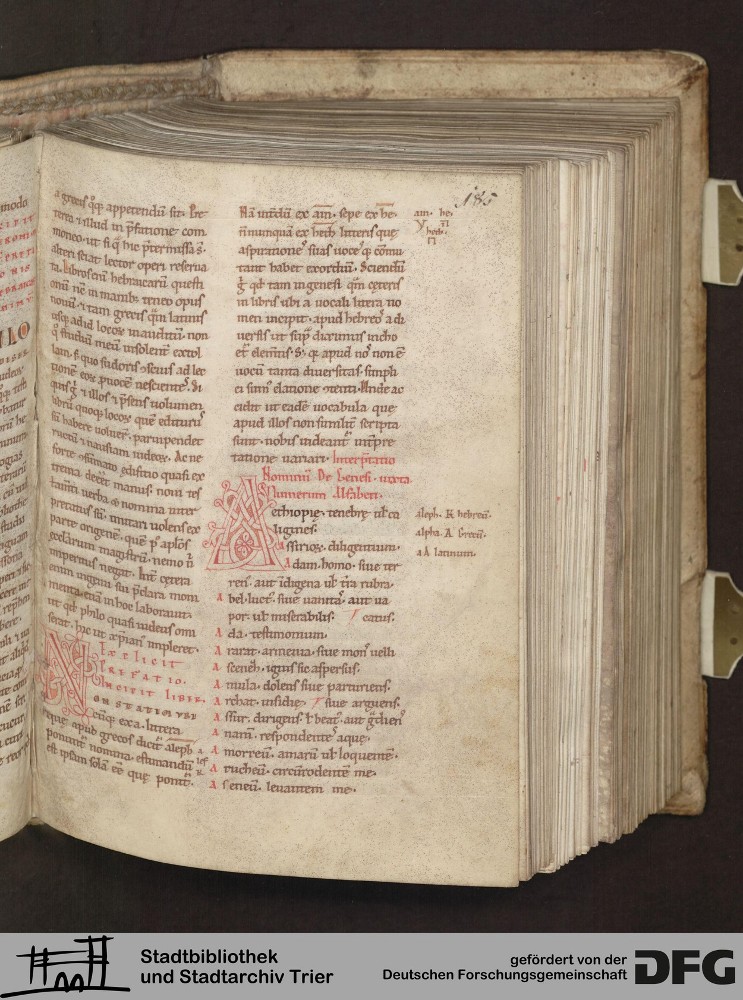 185
a grecis qq; appetendū sit. Pre
terea & illud in p̄fatione com
moneo. ut si q̄ hic p̄termissa s̄.
alteri sciat lector operi reserua
ta. Libros enī hebraicarū questi
onū nc̄ in manib; teneo opus
nouū. & tam grecis q̄m latinis
usq; ad id locoꝝ inauditū. non
q̄ studiū meū insolent̄ extol
lam. s; quo sudoris ꝯscius ad lec
tionē eoꝝ ꝓuocē nescientes. Si
quis g̊ & illos & p̄sens uolumen
librū quoq; locoꝝ quē edituꝰ
sū habere uoluer̄. paruipendet
ructū & nausiam iudeoꝝ. Ac ne
forte ꝯsūmato edificio quasi ex
trema deeēt manus. noui tes
tam̄ti uerba & nomina inter
p̄tatus sū. imitari uolens ex
parte origenē. quē p̄ ap̄los
eccl̄arum magistrū. nemo n̄
imperitus negat. Int̄ cetera
enim ingenii sui p̄clara mom
menta. etiā in hoc laborauit.
ut qd̄ philo quasi iudeus omi
serat. hic ut xp̄ianꝰ impleret.
Explicit
prefatio.
Incipit liber.
Non statim ubi
cūq; ex a. littera
que apud grecos dicit̄ aleph
ponunt̄ nomina. estimandū
est ipsam solā eē que ponit̄.
Nā int̄dū ex ain. sepe ex he.
n̄nunquā ex heth litteris que
aspirationes suas uocesq; cōmu
tant habet exordiū. Sciendū
g̊ qd̄ tam in genesi q̄m ceteris
in libris ubi a uocali litera no
men incipit. apud hebreos a di
uersis ut sup̄ diximus incho
et̄ elem̄tis. s; q̄ apud nos non ē
uocū tanta diuersitas. simpli
ci sumꝰ elatione ꝯtenti. Unde ac
cidit ut eadē uocabula que
apud illos non similit̄ scripta
sunt. nobis uideant̄ int̄pre
tatione uariari. Interpretatio
Nominū De Genesi. iuxta
Numerum Alfabeti.
Aethiopię. tenebrę ul̄ ca
ligines.
Assirioꝝ. diligentium.
Adam. homo. siue ter
renꝰ. aut īdigena ul̄ t̄ra rubra.
Abel. luctꝰ. siue uanitas. aut ua
por. ul̄ miserabilis. catus.
Ada. testimonium.
Ararat. armenia. siue mons uelli
Asceneh̄. ignis sic aspersus.
Amula. dolens siue parturiens.
Archat. insidię. siue arguens.
Assur. dirigens l̄ beatꝰ. aut g̊dienˢ
Anāni. respondentes aquę.
Amorreū. amarū ul̄ loquentē.
Arucheū. circūrodentē me.
Aseneū. leuantem me.
ain. he.
heth.
aleph. א hebreū.
alpha. A Grecū.
a A latinum.
Stadtbibliothek
und Stadtarchiv Trier
gefördert von der
Deutschen Forschungsgemeinschaft
DFG